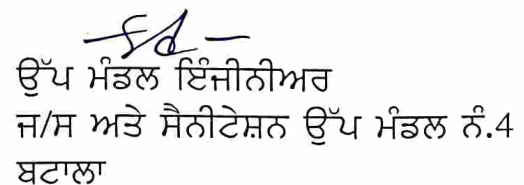 ਉੱਪ ਮੰਡਲ ਇੰਜੀਨੀਅਰ
ਜ/ਸ ਅਤੇ ਸੈਨੀਟੇਸ਼ਨ ਉੱਪ ਮੰਡਲ ਨੰ.4
ਬਟਾਲਾ